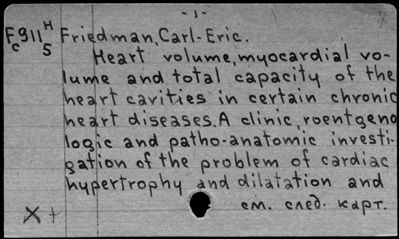 - 1 -
F911 H Friedman, Carl-Eric.
c 5
Heart volume, myocardial vo-
lume and total capacity of the
heart cavities in certain chronic
heart diseases. A clinic, roentgeno
logic and patho-anatomic investi-
gation of the problem of cardiac
hypertrophy and dilatation and
X + см. след. карт.